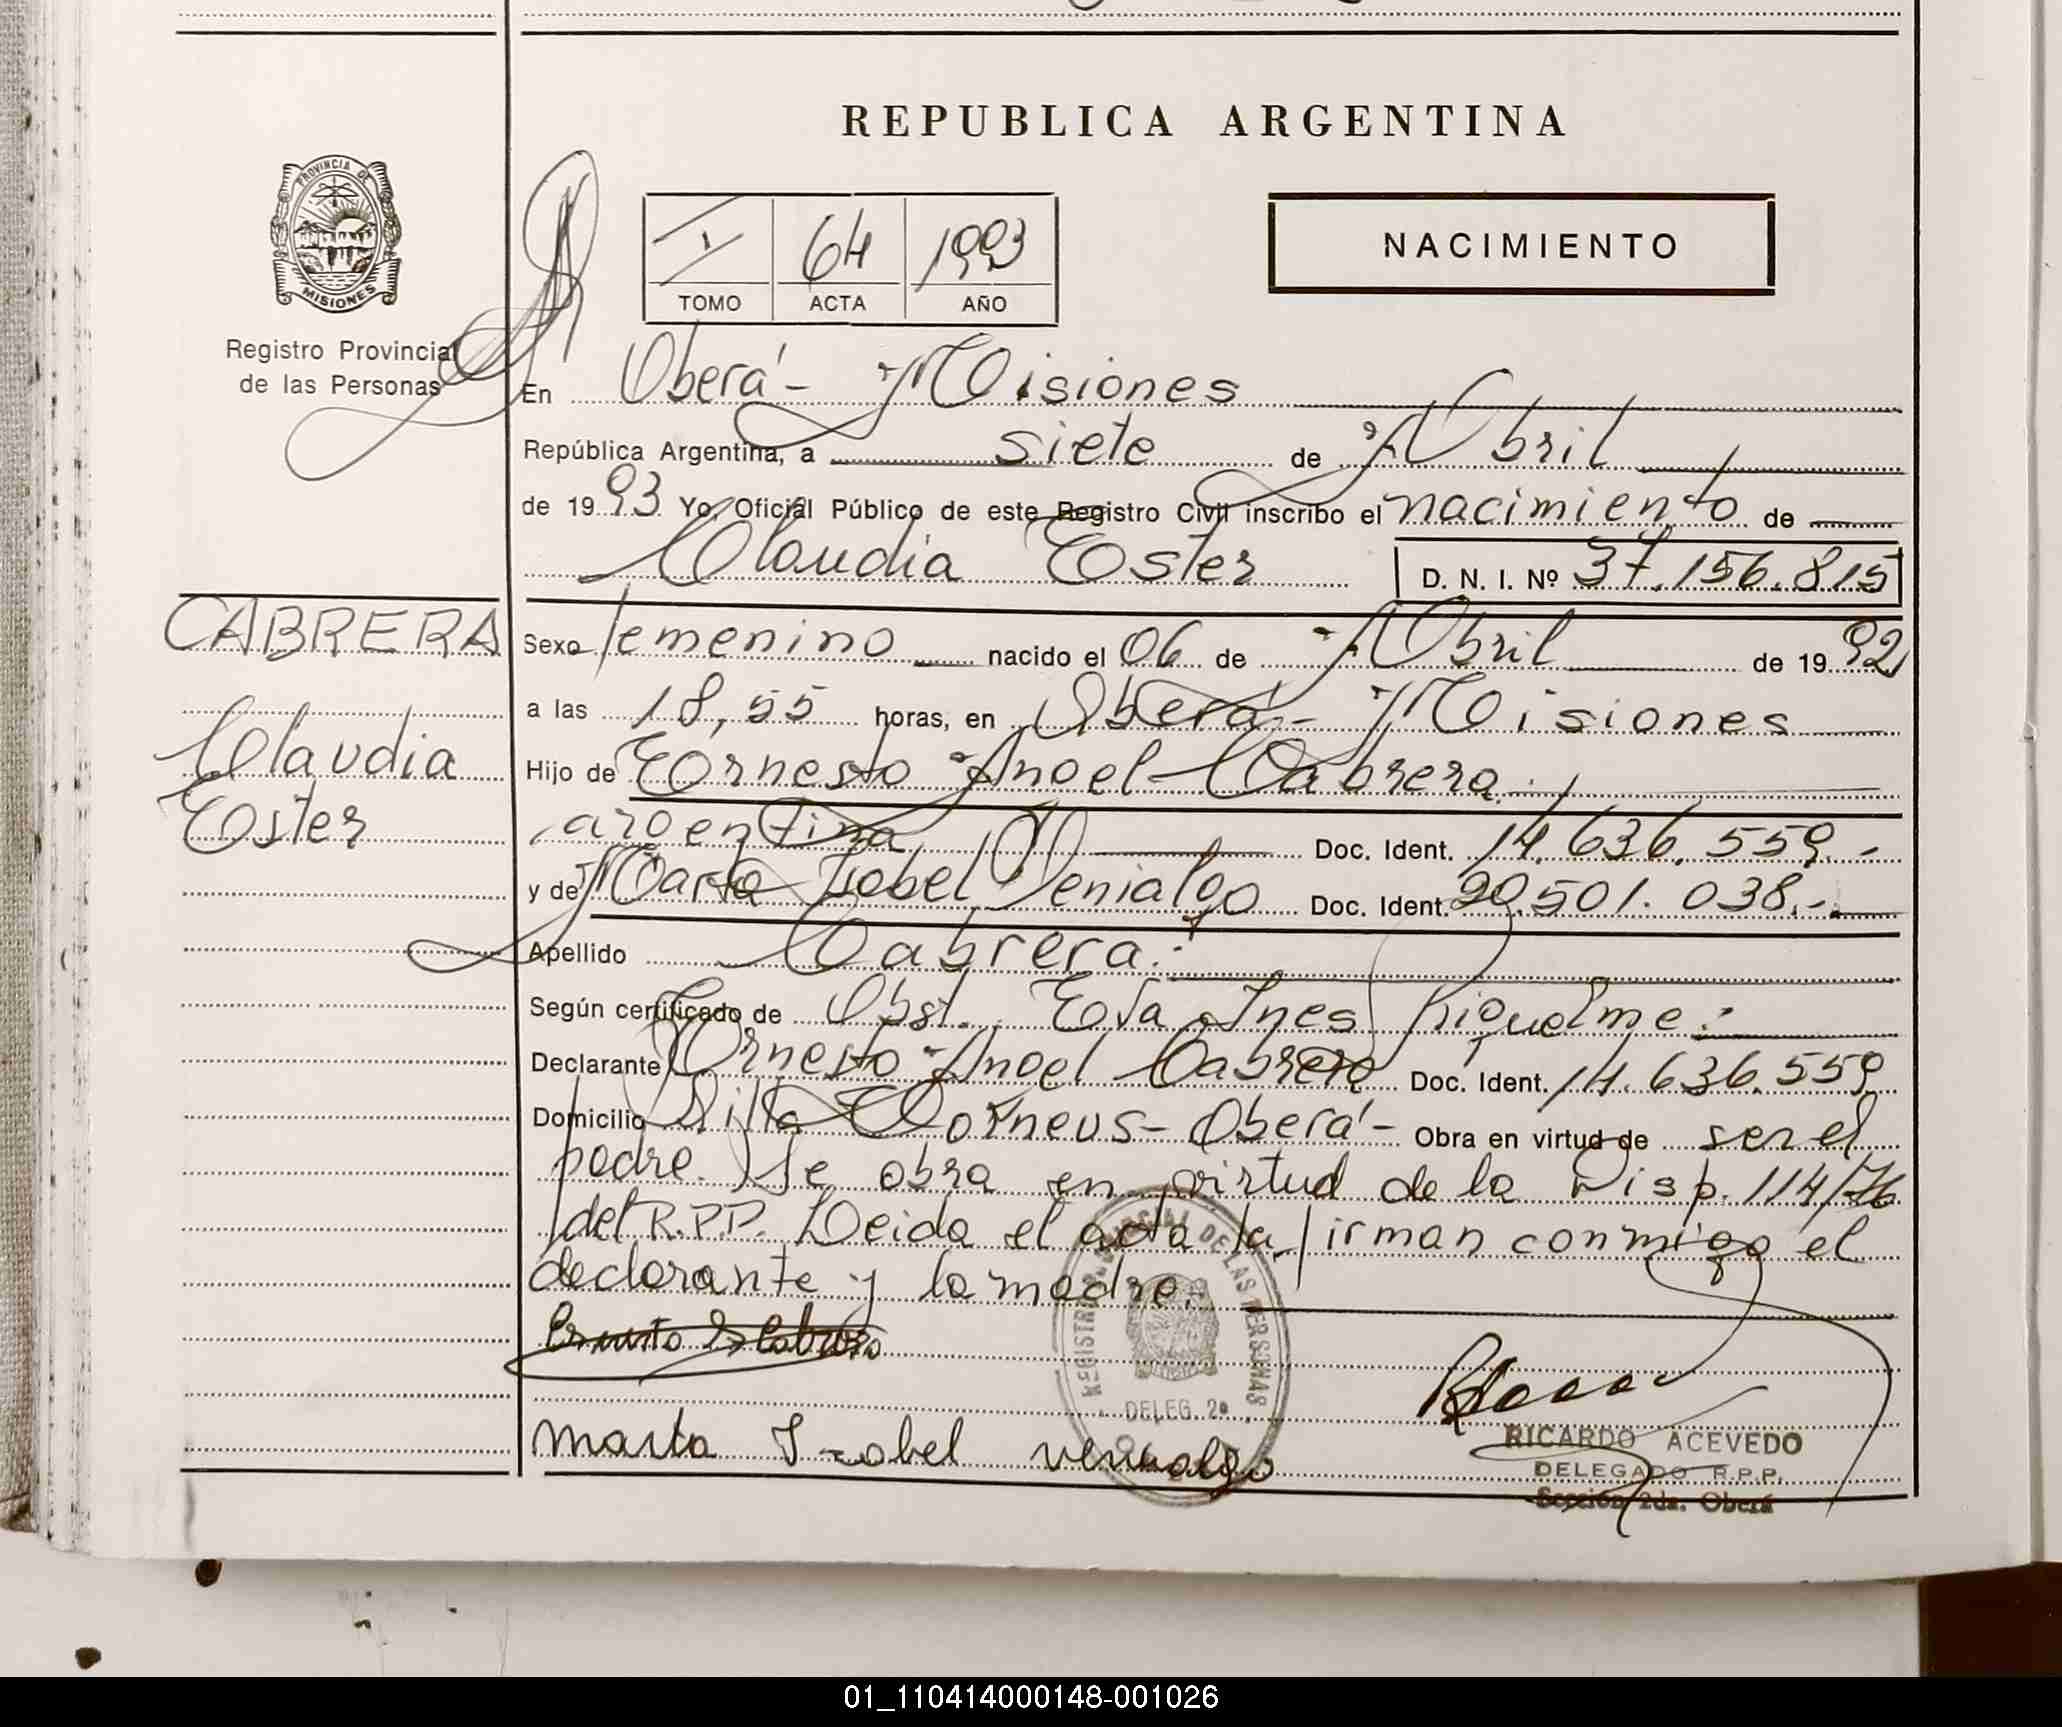 REPUBLICA ARGENTINA
PROVINCIA DE
MISIONES
Registro Provincial
de las Personas
I 64 1993
TOMO ACTA AÑO
NACIMIENTO
En Oberá - Misiones
República Argentina, a siete de Abril
de 1993 Yo, Oficial Público de este Registro Civil inscribo el nacimiento de
Claudia Ester D. N. I. Nº 37.156.815
CABRERA
Claudia
Ester
Sexo femenino nacido el 06 de Abril de 1992
a las 18,55 horas, en Oberá - Misiones
Hijo de Ernesto Angel Cabrera.
argentina Doc. Ident. 14.636.559.-
y de Marta Isabel Venialgo Doc. Ident. 20.501.038.-
Apellido Cabrera.
Según certificado de Obst. Eva Ines Riquelme.
Declarante Ernesto Angel Cabrera Doc. Ident. 14.636.559
Domicilio Villa - Oberá - Obra en virtud de ser el
padre. Se obra en virtud de la Disp. 114/76
del R.P.P. Leida el acta la firman conmigo el
declarante y la madre.
Ernesto A Cabrera
Marta Izabel venialgo
PROVINCIAL DE LAS PERSONAS
MISIONES
DELEG. 2a
RICARDO ACEVEDO
DELEGADO R.P.P.
Sección 2da. Oberá
01_110414000148-001026